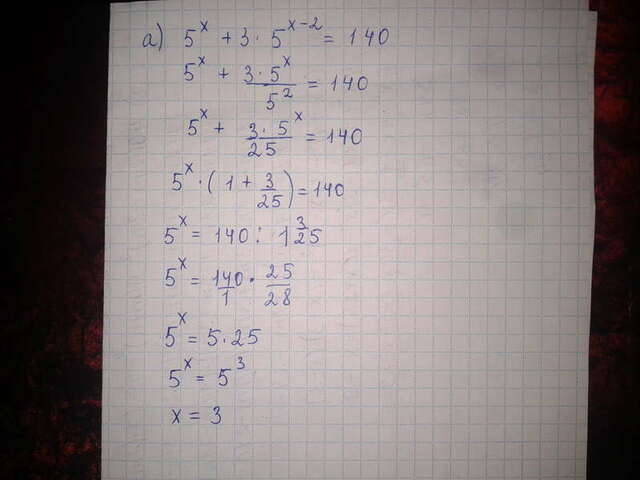 а) 5^x + 3 · 5^(x-2) = 140
5^x + (3 · 5^x)/(5^2) = 140
5^x + (3 · 5^x)/25 = 140
5^x · (1 + 3/25) = 140
5^x = 140 : 1 3/25
5^x = 140/1 · 25/28
5^x = 5 · 25
5^x = 5^3
x = 3